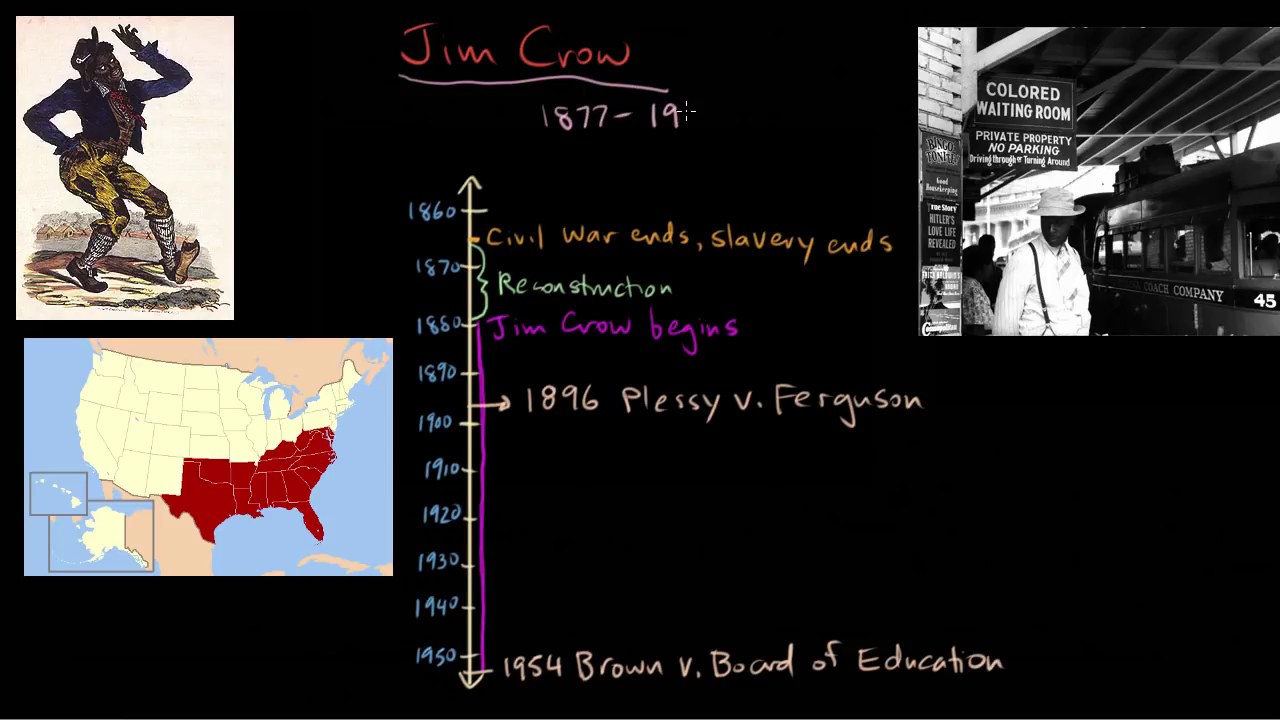 Jim Crow
1877-19
1860
Civil War ends, slavery ends
1870
Reconstruction
1880
Jim Crow begins
1890
1896 Plessy v. Ferguson
1900
1910
1920
1930
1940
1950
1954 Brown v. Board of Education
COLORED
WAITING ROOM
PRIVATE PROPERTY
NO PARKING
Driving through or Turning Around
BINGO
TONITE
Good
Housekeeping
True Story
HITLER'S
LOVE LIFE
REVEALED
Cosmopolitan
COACH COMPANY
45